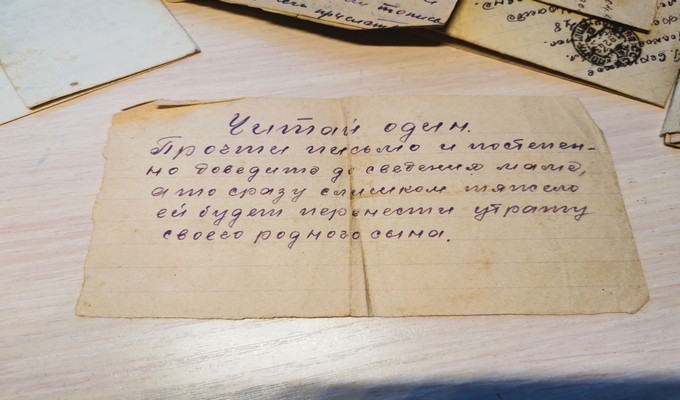 прислат
Читай один.
Прочти письмо и постепен-
но доведите до сведения маме,
а то сразу слишком тяжело
ей будет перенести утрату
своего родного сына.